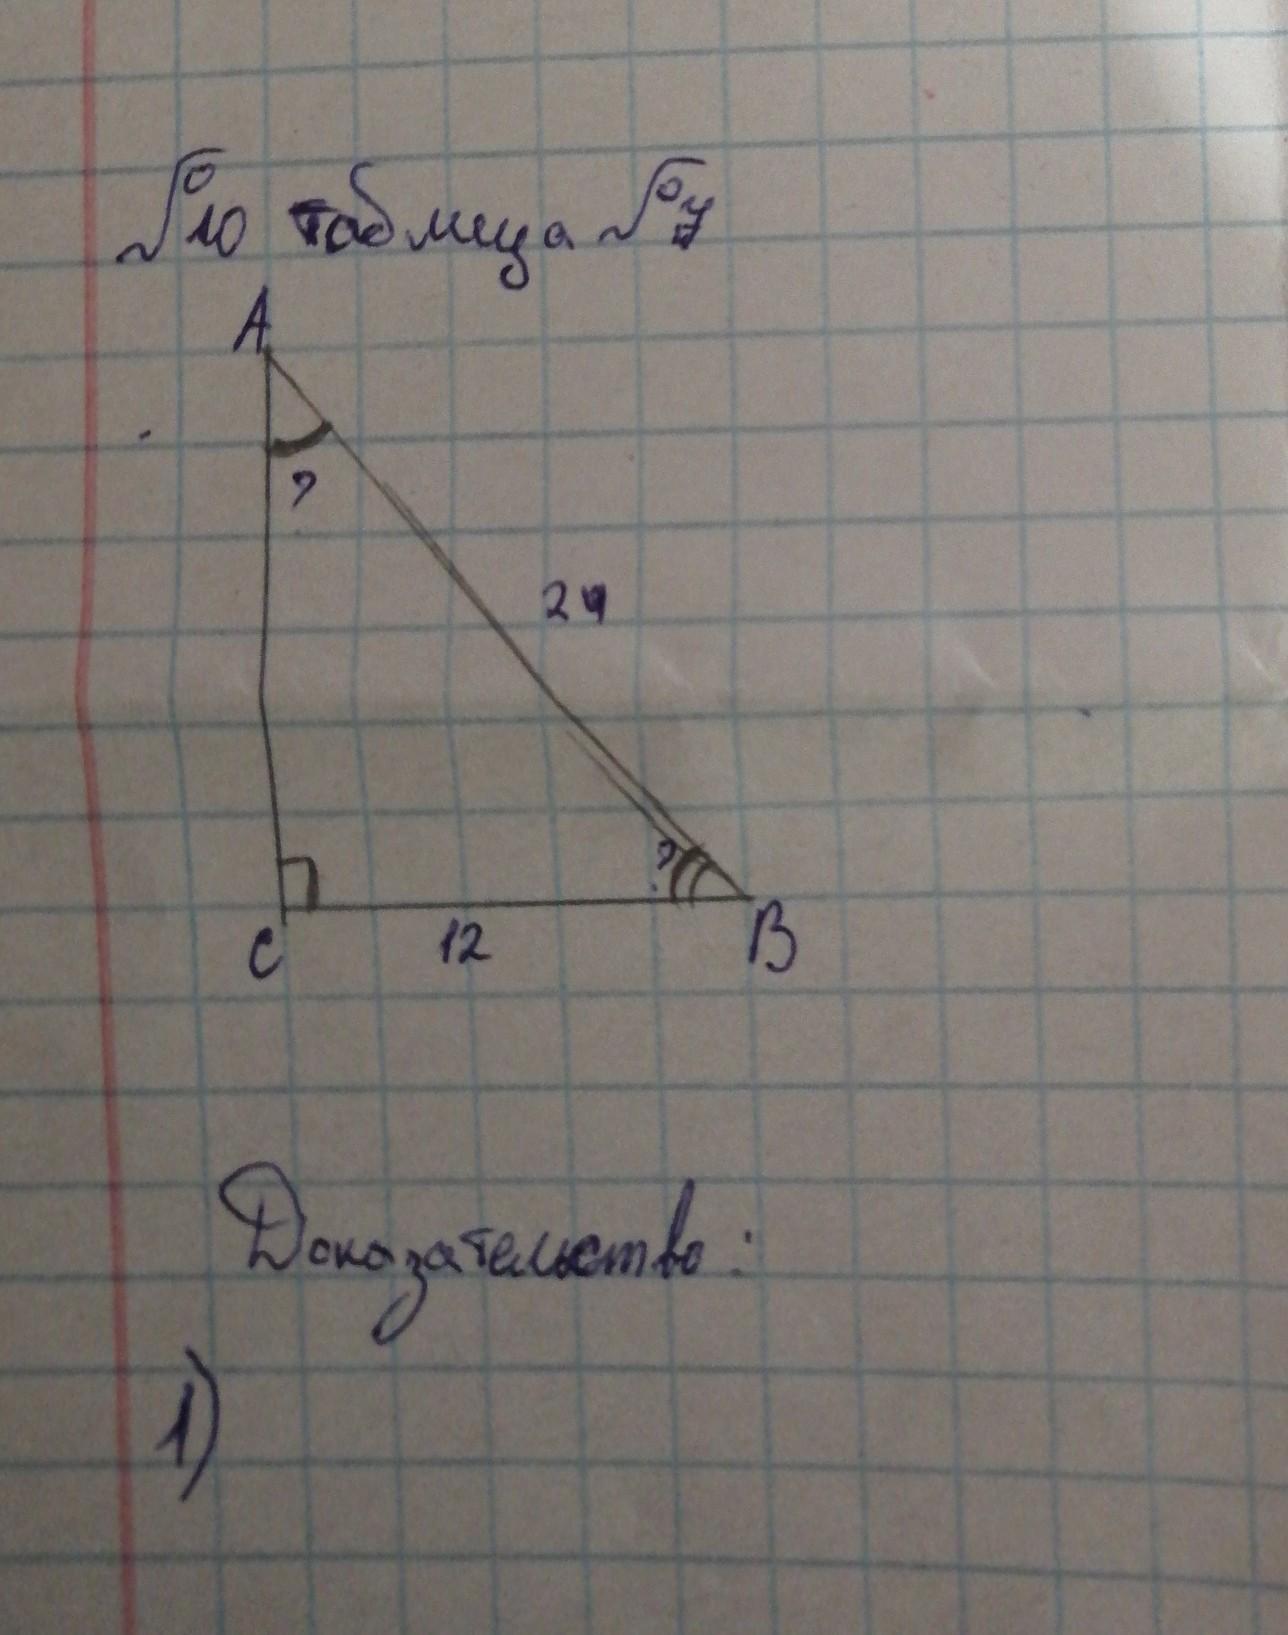 №10 таблица №7
A
?
24
?
C 12 B
Доказательство:
1)